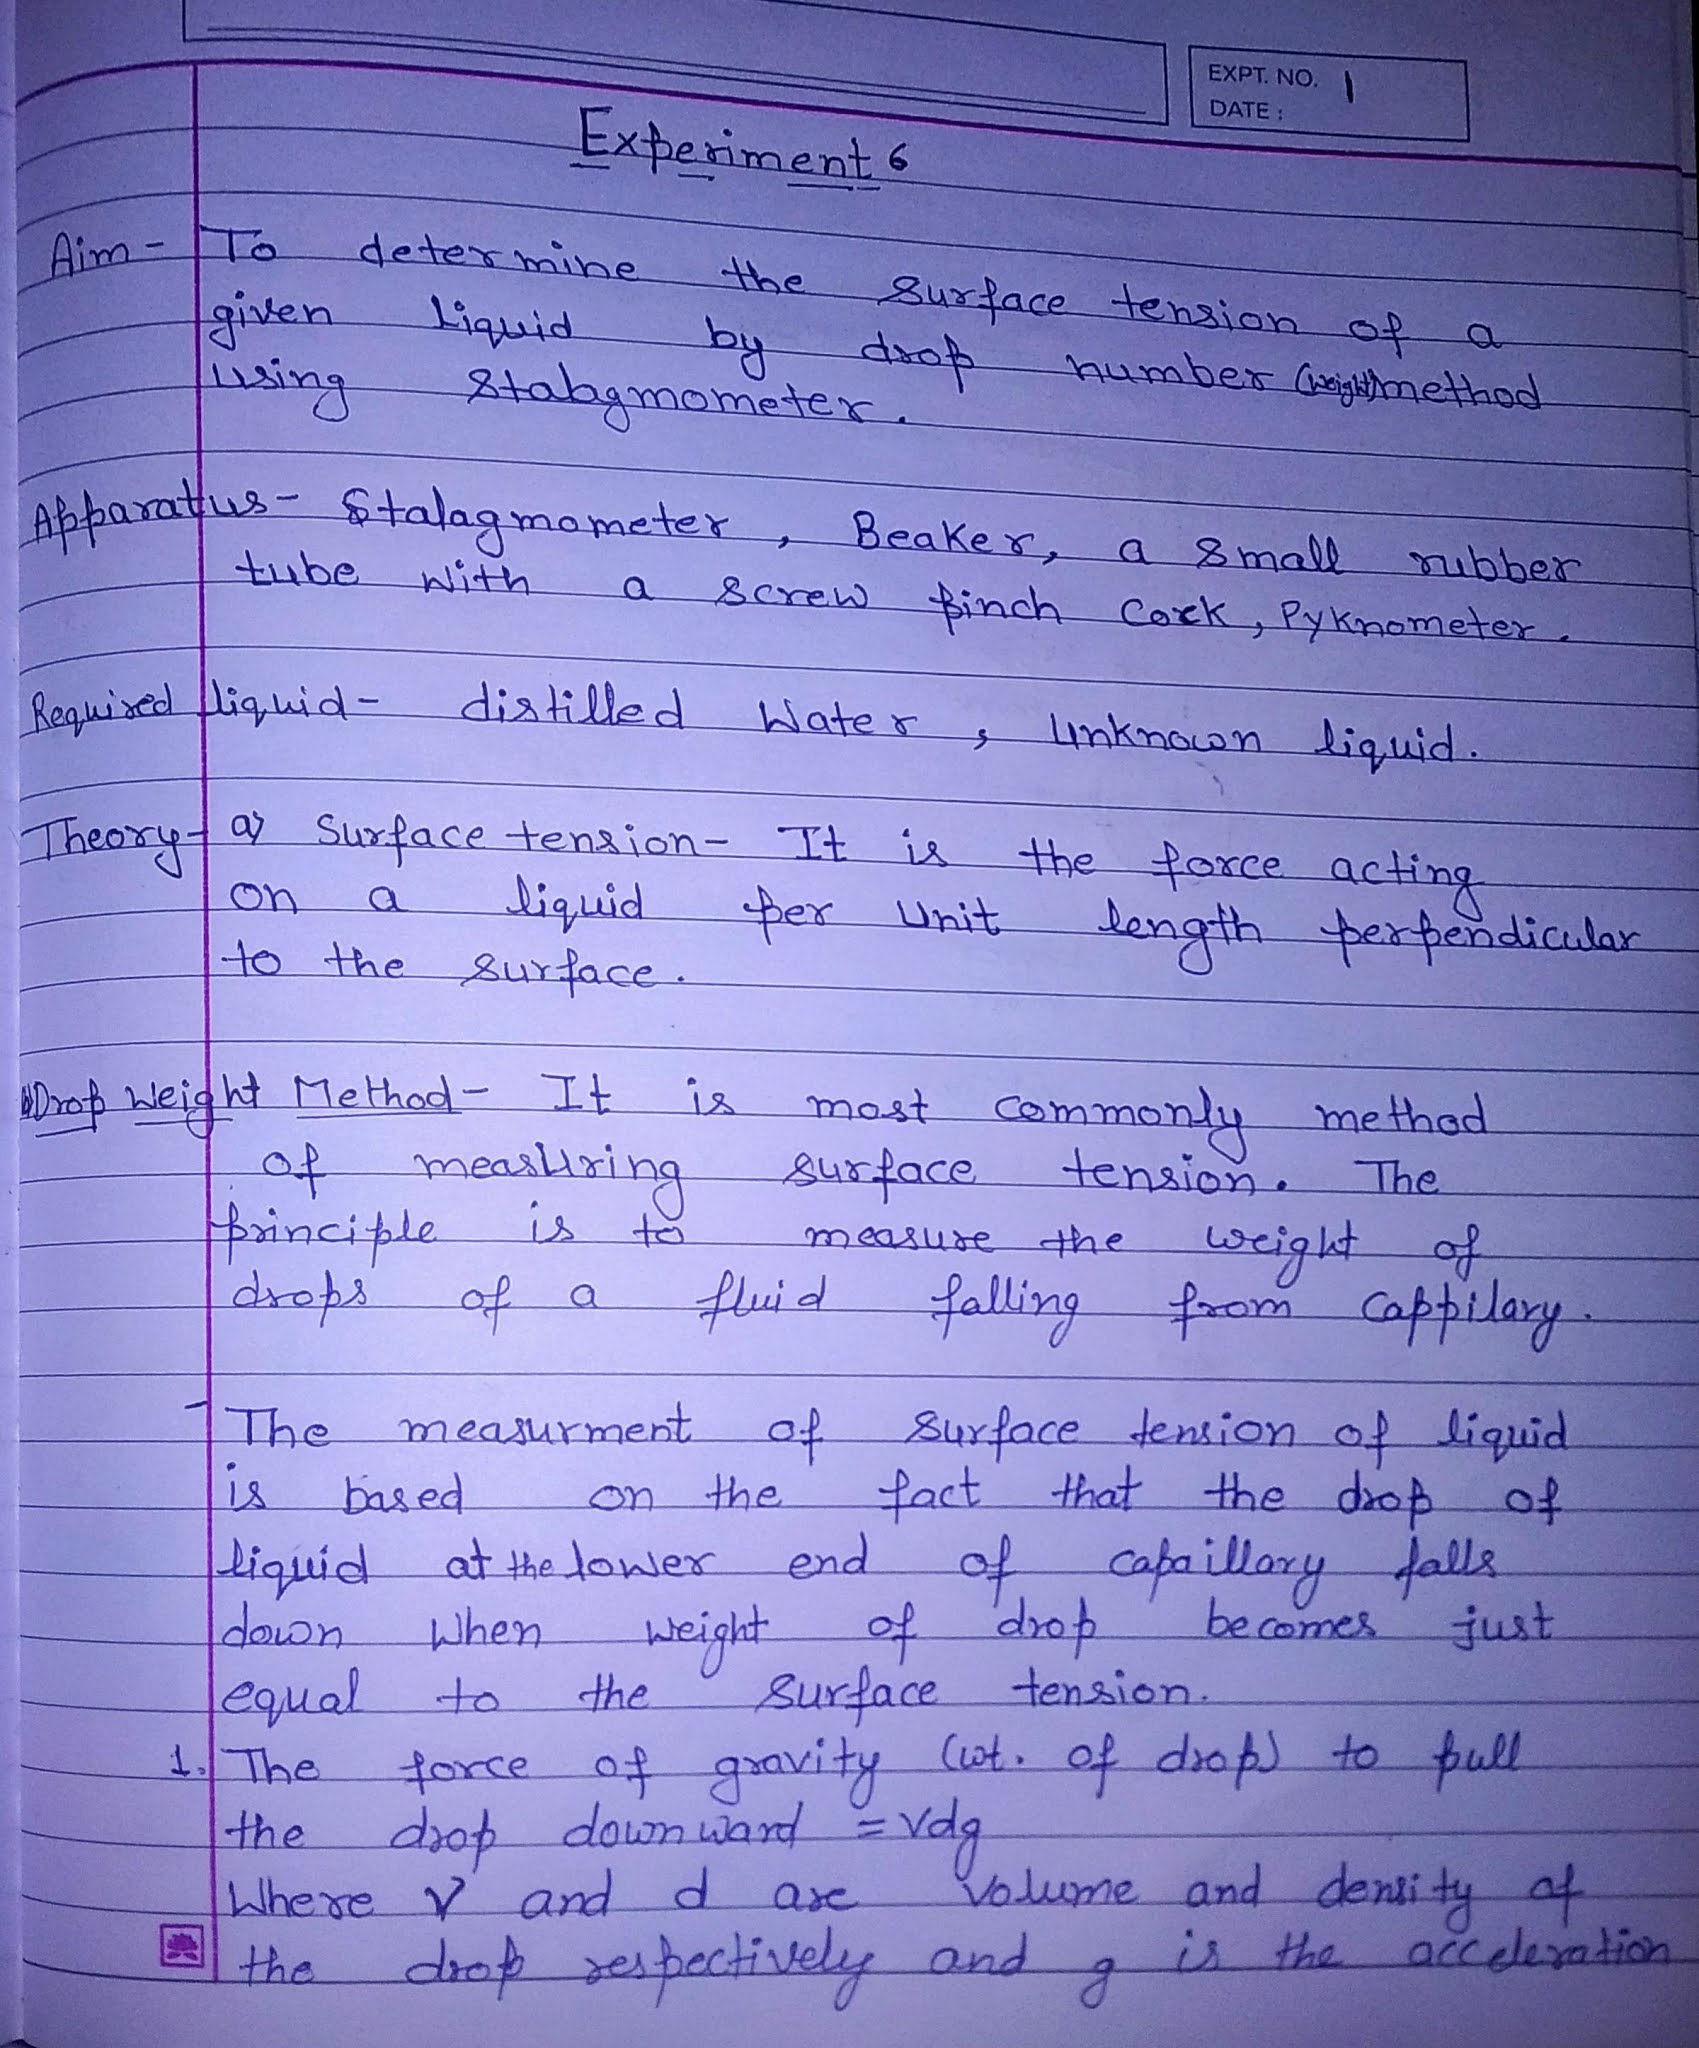 EXPT. NO. 1
DATE :
Experiment 6
Aim - To determine the surface tension of a
given liquid by drop number (weight) method
using Stalagmometer.
Apparatus - Stalagmometer, Beaker, a small rubber
tube with a screw pinch Cork, Pyknometer.
Required liquid - distilled Water, Unknown liquid.
Theory - a) Surface tension - It is the force acting
on a liquid per Unit length perpendicular
to the surface.
Drop Weight Method - It is most commonly method
of measuring surface tension. The
principle is to measure the weight of
drops of a fluid falling from Cappilary.
- The measurment of surface tension of liquid
is based on the fact that the drop of
liquid at the lower end of capaillary falls
down When weight of drop becomes just
equal to the surface tension.
1. The force of gravity (wt. of drop) to pull
the drop downward = vdg
Where V and d are Volume and density of
the drop respectively and g is the acceleration